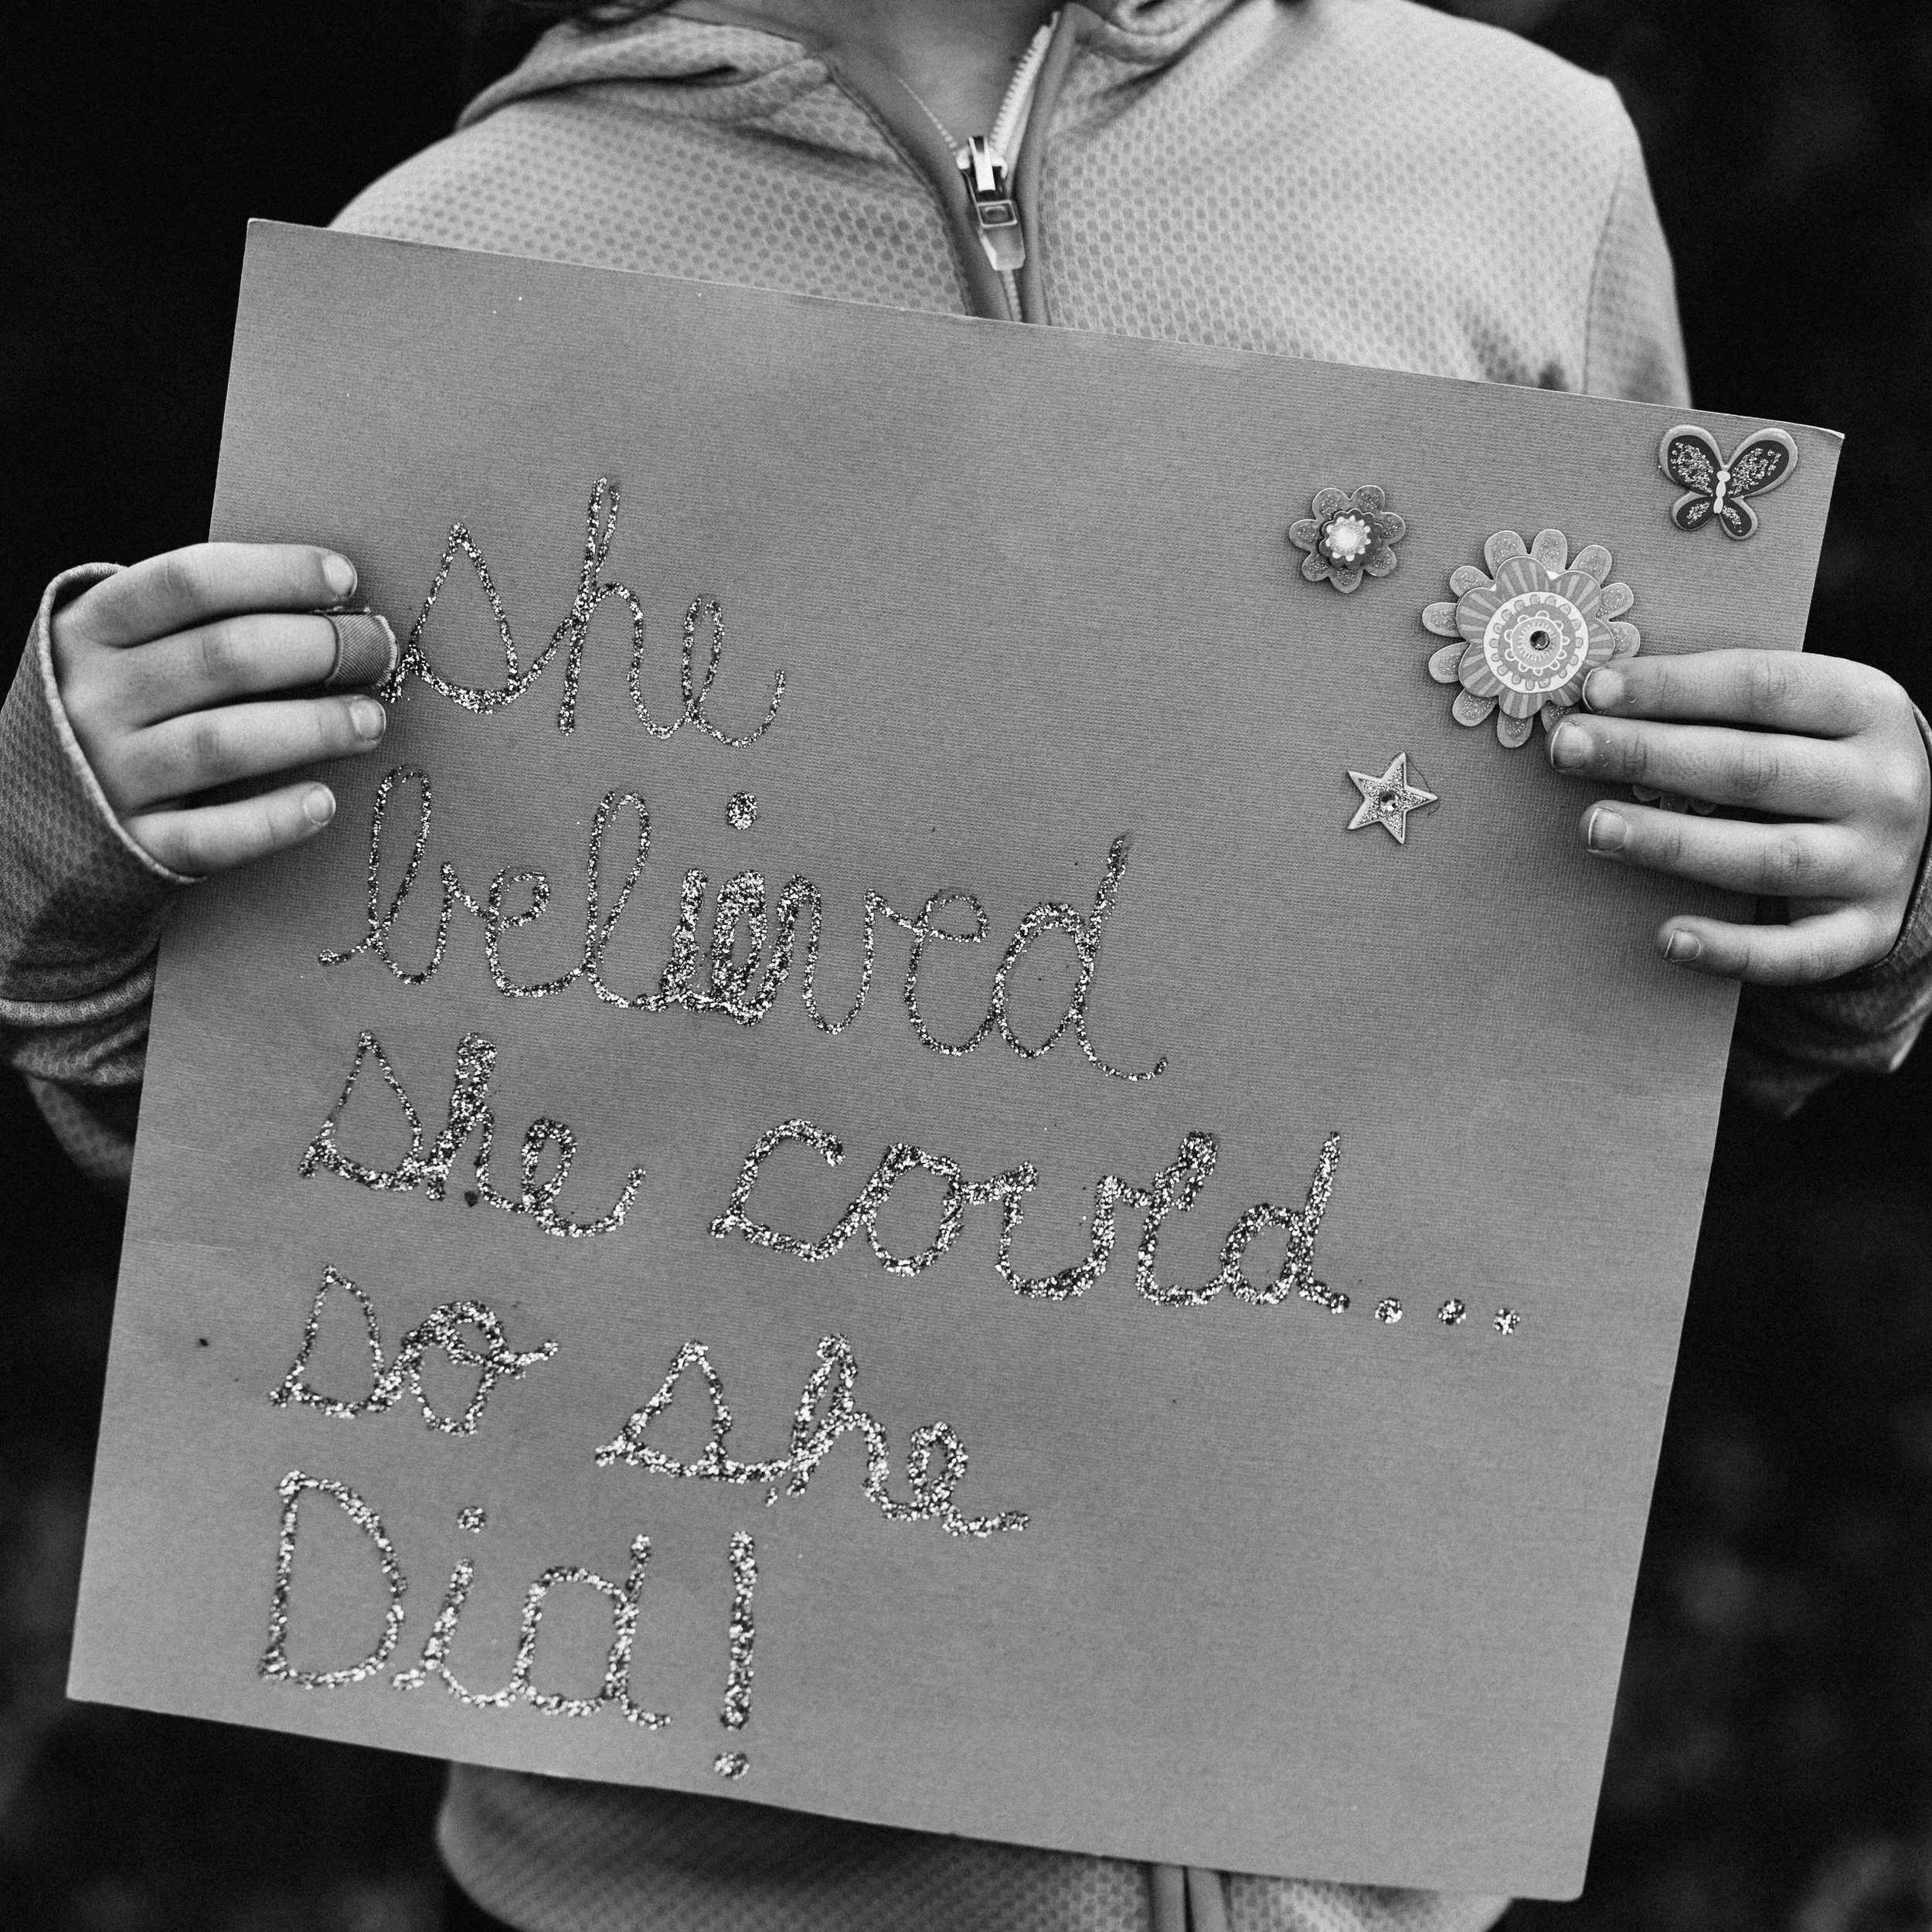 she
believed
she could...
so she
Did!